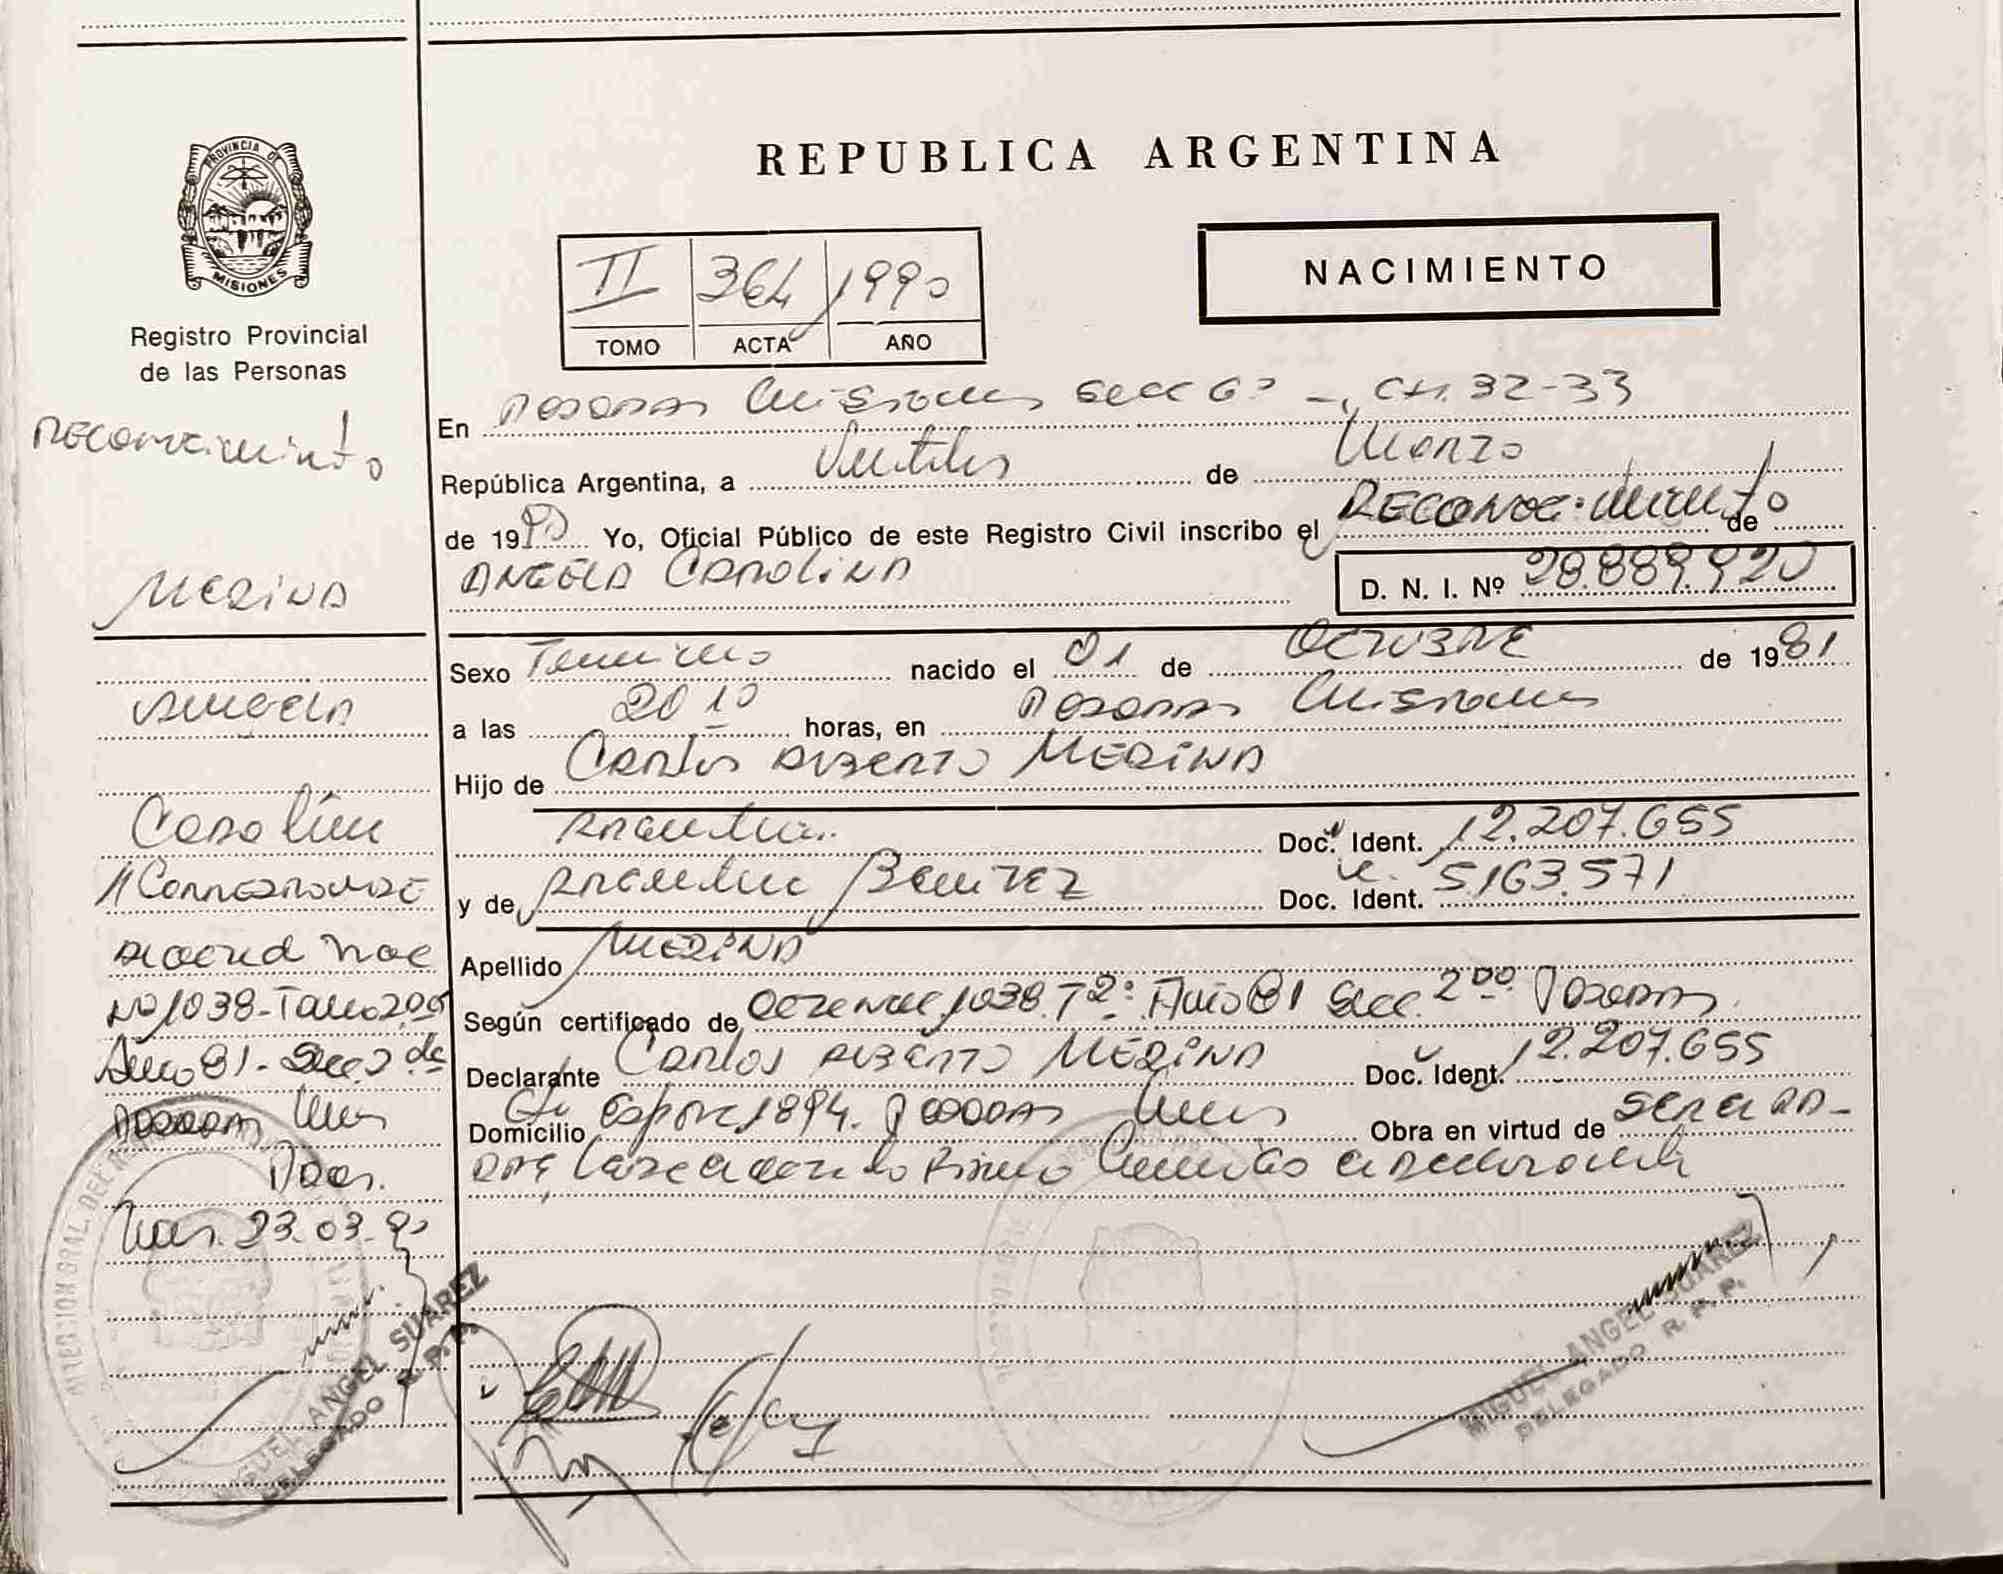 REPUBLICA ARGENTINA
PROVINCIA DE MISIONES
Registro Provincial
de las Personas
II 364 1990
TOMO ACTA AÑO
NACIMIENTO
En Posadas Misiones Secc 6ª -, CH. 32-33
República Argentina, a de Marzo
de 1990 Yo, Oficial Público de este Registro Civil inscribo el Reconocimiento de
ANGELA CAROLINA D. N. I. Nº 28.889.920
Sexo Femenino nacido el 01 de OCTUBRE de 1981
a las 20 10 horas, en Posadas Misiones
Hijo de Carlos Alberto MERINA
Argentina. Doc. Ident. 12.207.655
y de Argentina Benitez Doc. Ident. 5.163.571
Apellido MERINA
Según certificado de 1038. Tº 2º Año 81 Secc. 2da. Posadas.
Declarante Carlos Alberto MERINA Doc. Ident. 12.207.655
Domicilio 1894. Posadas Mnes Obra en virtud de
Reconocimiento
MERINA
Angela
Carolina
Corresponde
al acta Nac
Nº 1038-Tomo 2do
Año 81-Secc. 2da
Posadas Mnes
Pdas.
Mnes. 23.03.90
MIGUEL ANGEL SUAREZ
DELEGADO R.P.P.
MIGUEL ANGEL SUAREZ
DELEGADO R.P.P.